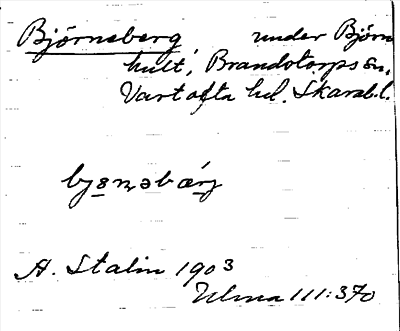 Björneberg under Björn
hult, Brandstorps sn,
Vartofta hd. Skarab.l.
bjɵnəbærj
A. Stalin 1903
Ulma 111:370